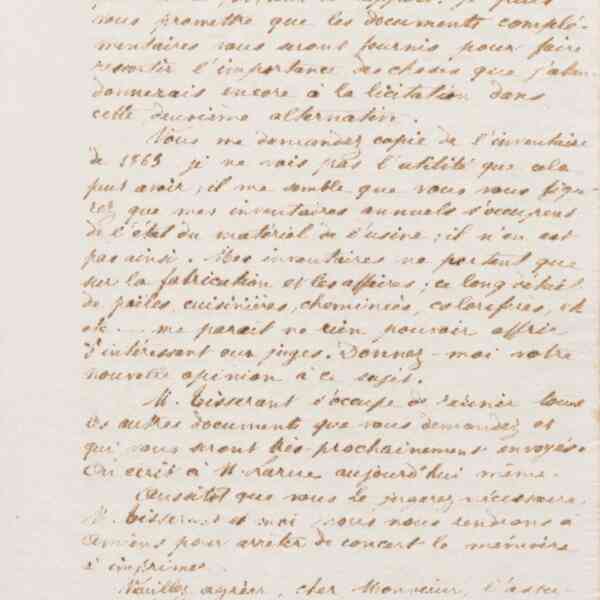 vous promettre que les documents complé-
mentaires vous seront fournis pour faire
ressortir l'importance des choses que j'aban
donnerais encore à la licitation dans
cette deuxième alternative.
Vous me demandez copie de l'inventaire
de 1863 je ne vois pas l'utilité que cela
peut avoir ; il me semble que vous vous figu-
rez que mes inventaires annuels s'occupent
de l'état du matériel de l'usine ; il n'en est
pas ainsi. Mes inventaires ne portent que
sur la fabrication et les affaires ; ce long détail
de poêles, cuisinières, cheminées, calorifères, etc
etc — me parait ne rien pouvoir offrir
d'intéressant aux juges. Donnez-moi votre
nouvelle opinion à ce sujet.
M. Tisserant s'occupe de réunir tous
les autres documents que vous demandez et
qui vous seront très prochainement envoyés.
On écrit à M. Larue aujourd'hui même.
Aussitôt que vous le jugerez nécessaire,
M. Tisserant et moi nous nous rendrons à
Amiens pour arrêter de concert le mémoire
à imprimer.
Veuillez agréer, cher Monsieur, l'assu-